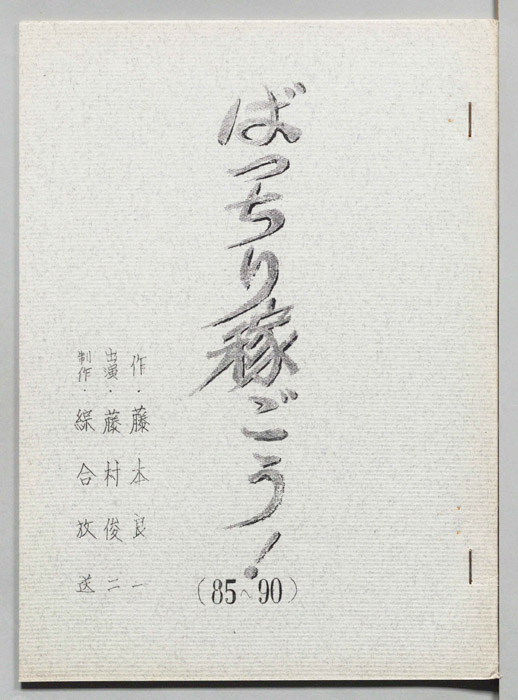 ばっちり稼ごう!
(85~90)
作・藤本良一
出演・藤村俊二
制作・綜合放送